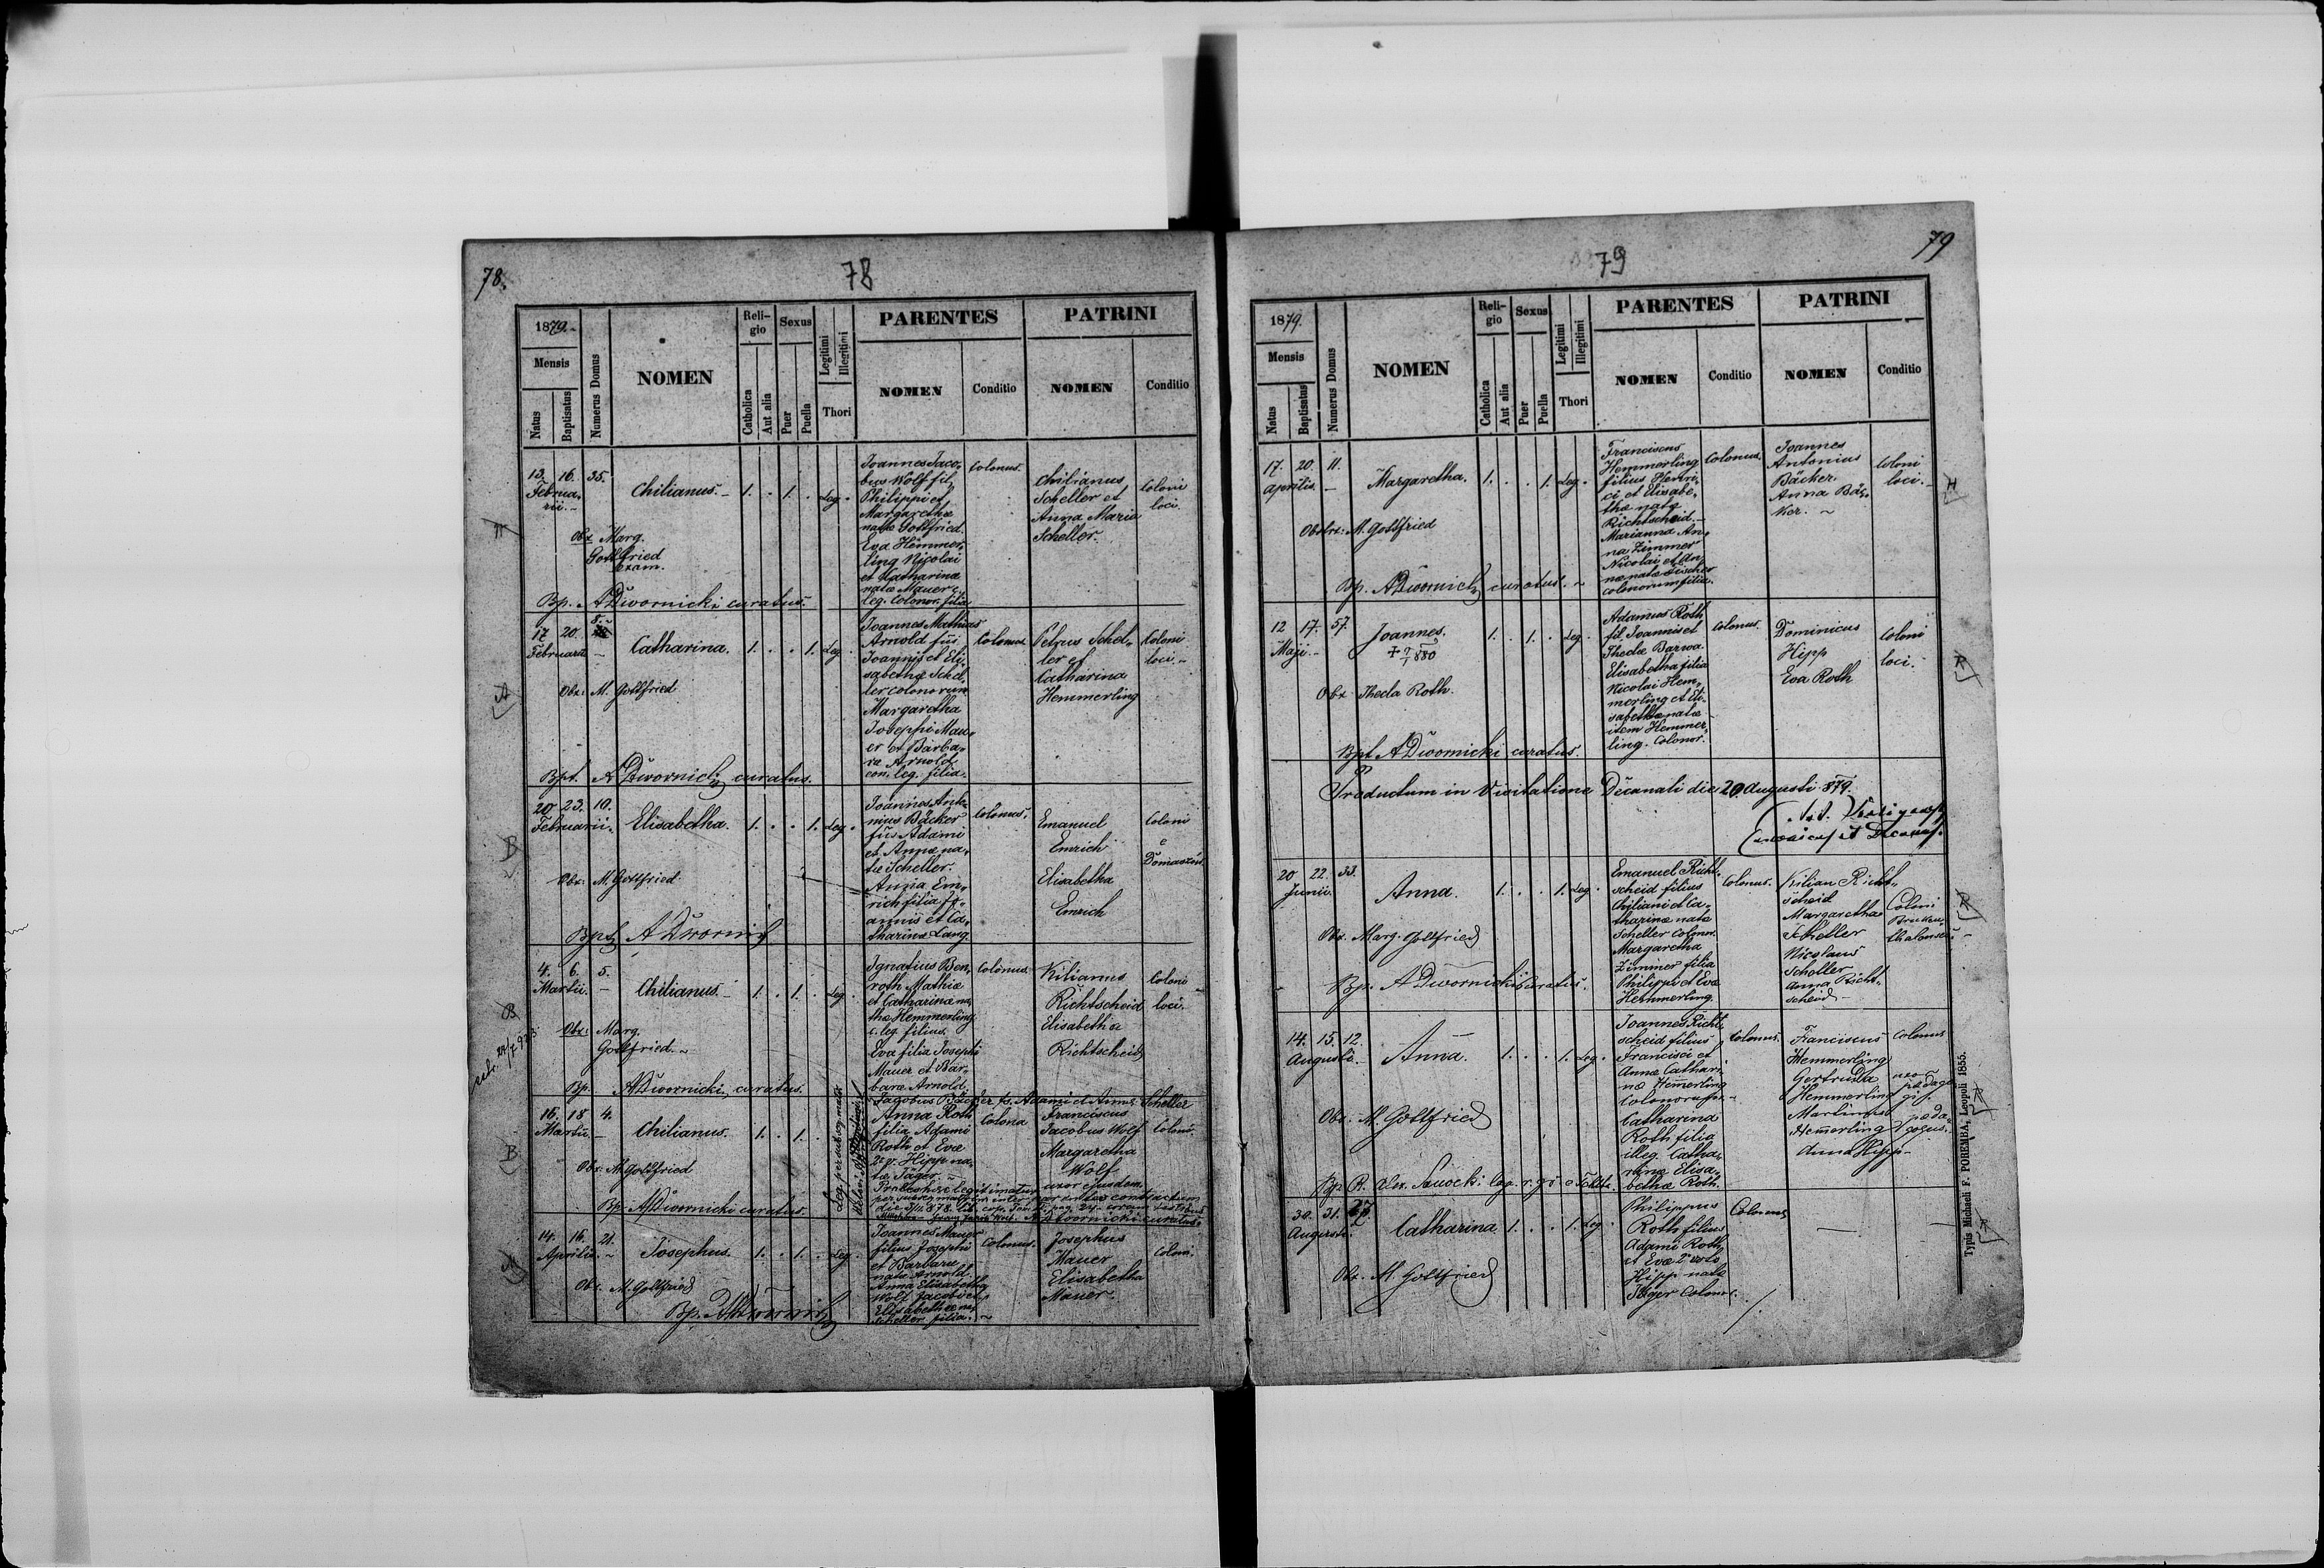 78.
78
1879.
Mensis
Natus
Baptisatus
Numerus Domus
NOMEN
Reli-
gio
Catholica
Aut alia
Sexus
Puer
Puella
Legitimi
Illegitimi
Thori
PARENTES
NOMEN
Conditio
PATRINI
NOMEN
Conditio
13. 16. 35.
Februa,
rii.
Chilianus. 1. . 1. . Leg.
Obx Marg.
Gottfried
exam.
Bp. ADwornicki curatus.
Joannes Jaco,
bus Wolf fil,
Philippi et
Margarethæ
natæ Gottfried.
Eva Hemmer,
ling Nicolai
et Catharinæ
natæ Mauer
leg. Colonor. filia
Colonus.
Chilianus
Scheller et
Anna Maria
Scheller.
Coloni
loci.
17 20. 8.
Februarii
Catharina. 1. . . 1. Leg.
Obx: M. Gottfried
Bpt. ADwornicki curatus.
Joannes Mathias
Arnold fius
Joannis et Eli,
sabethæ Schel,
ler colonorum
Margaretha
Josephi Mau,
er et Barba,
ræ Arnold
con. leg. filia.
Colonus.
Petrus Schel,
ler et
Catharina
Hemmerling
Coloni
loci.
20 23. 10.
Februarii.
Elisabetha. 1. . . 1. Leg.
Obx: M. Gottfried
Bpt ADwornicki
Joannes Anto,
nius Bäcker
fius Adami
et Annæ na,
tæ Scheller.
Anna Em,
rich filia Jo,
annis et Ca,
tharinæ Lang.
Colonus.
Emanuel
Emrich
Elisabetha
Emrich
Coloni
e
4. 6. 5.
Martii.
Chilianus 1. . 1. . Leg.
Obx: Marg.
Gottfried.
Bp. ADwornicki curatus.
Ignatius Ben,
roth Mathiæ
et Catharinæ na,
tæ Hemmerling
c. leg filius.
Eva filia Josephi
Mauer et Bar,
baræ Arnold.
Colonus
Kilianus
Richtscheid
Elisabetha
Richtscheid
Coloni
loci.
16. 18 4.
Martii.
Chilianus. 1. . 1. .
Obx. M. Gottfried
Bp. ADwornicki curatus.
Jacobus Bäcker fs. Adami et Annæ Scheller
Anna Roth
filia Adami
Roth et Evæ
2 v. Hipp na,
tæ Jäger
Colona
Franciscus
Jacobus Wolf
Margaretha
Wolf
uxor ejusdem.
Coloni.
14. 16. 21.
Aprilis.
Josephus. 1. . 1. . Leg.
Obx. M. Gottfried
Bp. ADwornicki
Joannes Mauer
filius Josephi
et Barbara
nata Arnold.
Anna Elisabetha
Wolf Jacobi et
Elisabethæ na,
Scheller filia.
Colonus.
Josephus
Mauer
Elisabetha
Mauer.
Coloni.
79
79
1879.
Mensis
Natus
Baptisatus
Numerus Domus
NOMEN
Reli-
gio
Catholica
Aut alia
Sexus
Puer
Puella
Legitimi
Illegitimi
Thori
PARENTES
NOMEN
Conditio
PATRINI
NOMEN
Conditio
17. 20. 11.
Aprilis.
Margaretha. 1. . . 1. Leg.
Obstrx: M. Gottfried
Bp. ADwornicki curatus.
Franciscus
Hemmerling
filius Henri,
ci et Elisabe,
thæ natæ
Richtscheid.
Marianna An,
na Zimmer
Nicolai et An,
næ natæ Fischer
colonorum filia.
Colonus.
Joannes
Antonius
Bäcker.
Anna Bäc,
ker.
Coloni
loci.
H
12 17. 57.
Maji.
Joannes. 1. . 1. . Leg.
Obx Thecla Roth.
Bpt ADwornicki curatus.
Adamus Roth
fil. Joannis et
Theclæ Barwa.
Elisabetha filia
Nicolai Hem,
merling et Eli,
sabethæ natæ
item Hemmer,
ling. Colonor.
Colonus.
Dominicus
Hipp
Eva Roth
Coloni
loci.
R
Productum in Visitatione Decanali die 20. Augusti 879.
20 22. 33.
Junii.
Anna. 1. . . 1. Leg.
Obx. Marg. Gottfried
Bp. ADwornicki curatus.
Emanuel Richt,
scheid filius
Chiliani et Ca,
tharinæ natæ
Scheller Colonor.
Margaretha
Zimmer filia
Philippi et Evæ
Hemmerling.
Colonus.
Kilian Richt,
scheid
Margaretha
Scheller
Nicolaus
Scheller
Anna Richt,
scheid
Coloni
R
14. 15. 12.
Augusti.
Anna. 1. . . 1. Leg.
Obx. M. Gottfried
Joannes Richt,
scheid filius
Francisci et
Annæ Cathari,
næ Hemerling
Catharina
Roth filia
illeg. Catha,
rinæ Elisa,
bethæ Roth.
Colonus.
Franciscus
Hemmerling
Gertruda
Hemmerling
Martinus
Hemerling
Anna Hipp
Colonus
R
30. 31.
Augusti.
Catharina 1. . . 1. Leg.
Obx. M Gottfried
Philippus
Roth filius
Adami Roth
et Evæ 2° voto
Hipp natæ
Jäger Colonor.
Colonus
R
Typis Michaeli F. POREMBA, Leopoli 1855.